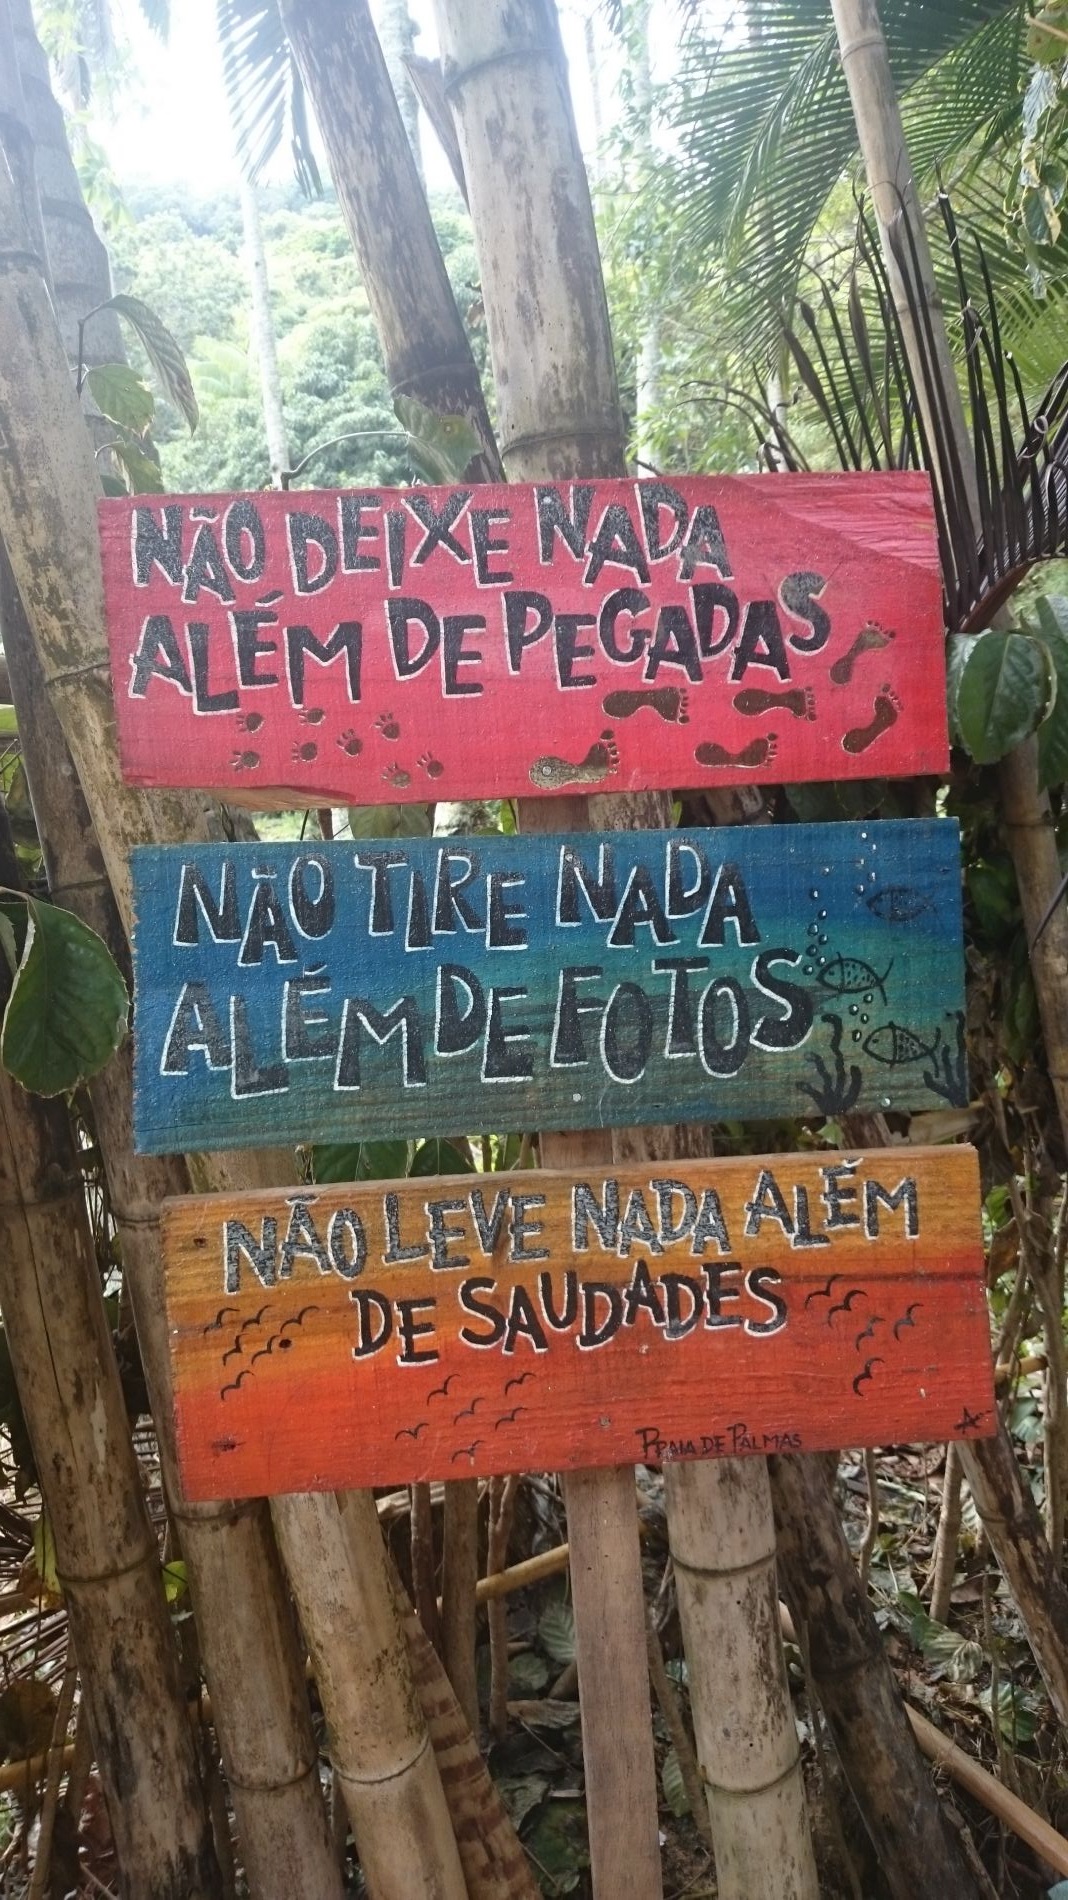 NÃO DEIXE NADA
ALÉM DE PEGADAS
NÃO TIRE NADA
ALÉM DE FOTOS
NÃO LEVE NADA ALÉM
DE SAUDADES
PRAIA DE PALMAS
A